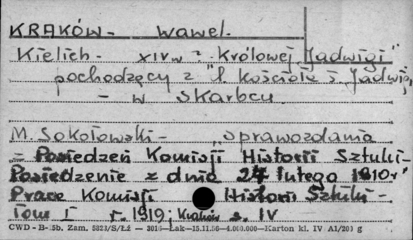 KRAKÓW - Wawel.
Kielich - XIV w. z. "Królowej Jadwigi"
pochodzący z "d. Kościoła ś. Jadwigi,
- w Skarbcu
M. Sokołowski - "Sprawozdania
- Posiedzeń Komisji Historii Sztuki -
Posiedzenie z dnia 24 lutego 1910 r
Prace Komisji Historii Sztuki -
Tom I r. 1919; Kraków s. IV
CWD - B-5b. Zam. 5823/S/Łż — Łak—15.11.56—4.000.000—Karton kl. IV A1/200 g